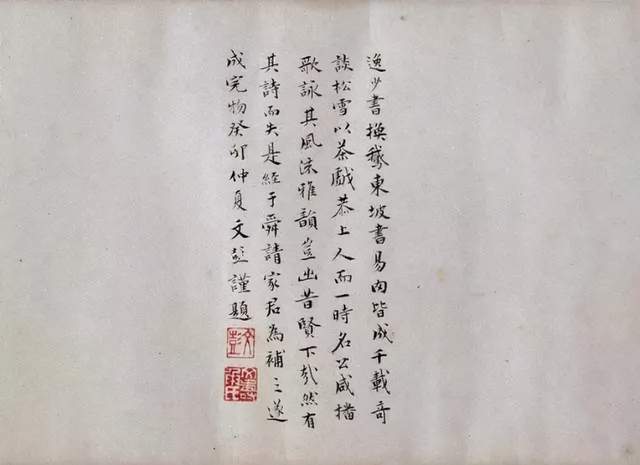 逸少書換鵝東坡書易肉皆成千載奇
談松雪以茶戲恭上人而一時名公咸播
歌詠其風流雅韻豈出昔賢下哉然有
其詩而失是經于舜請家君為補之遂
成完物癸卯仲夏文彭謹題
文彭